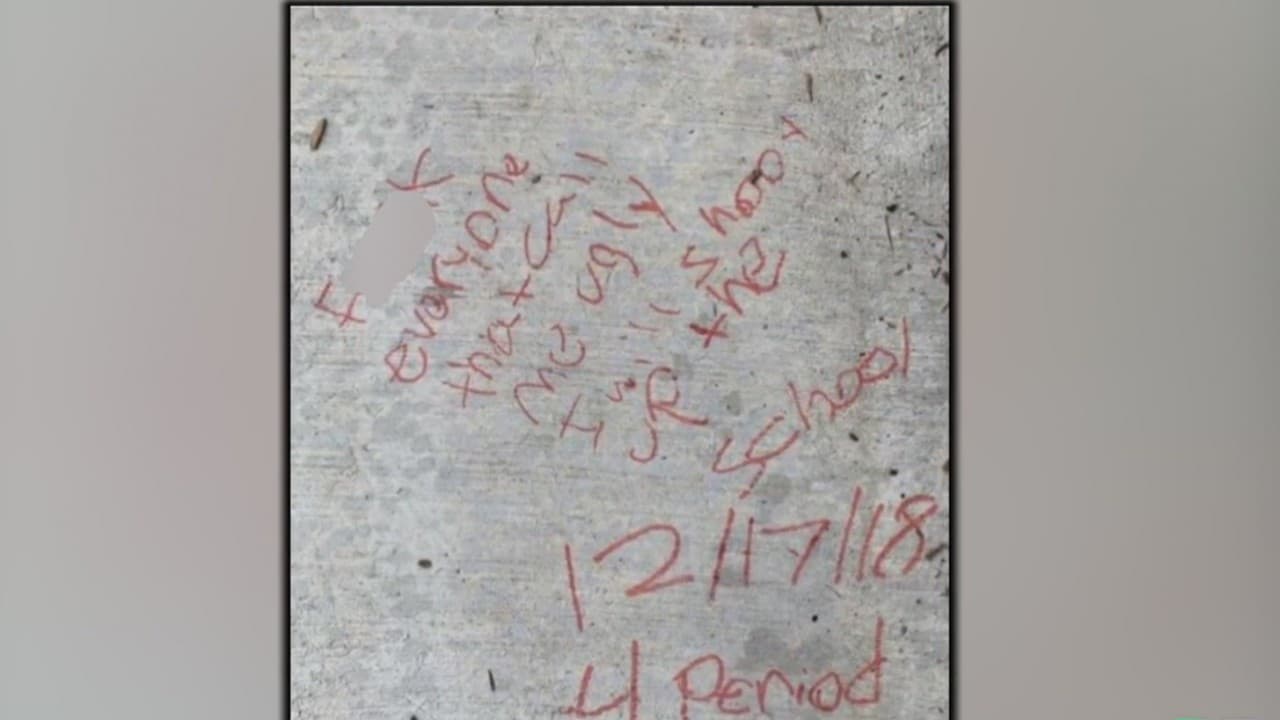 F K
everyone
that call
me ugly
I will shoot
up the
school
12/17/18
4 Period